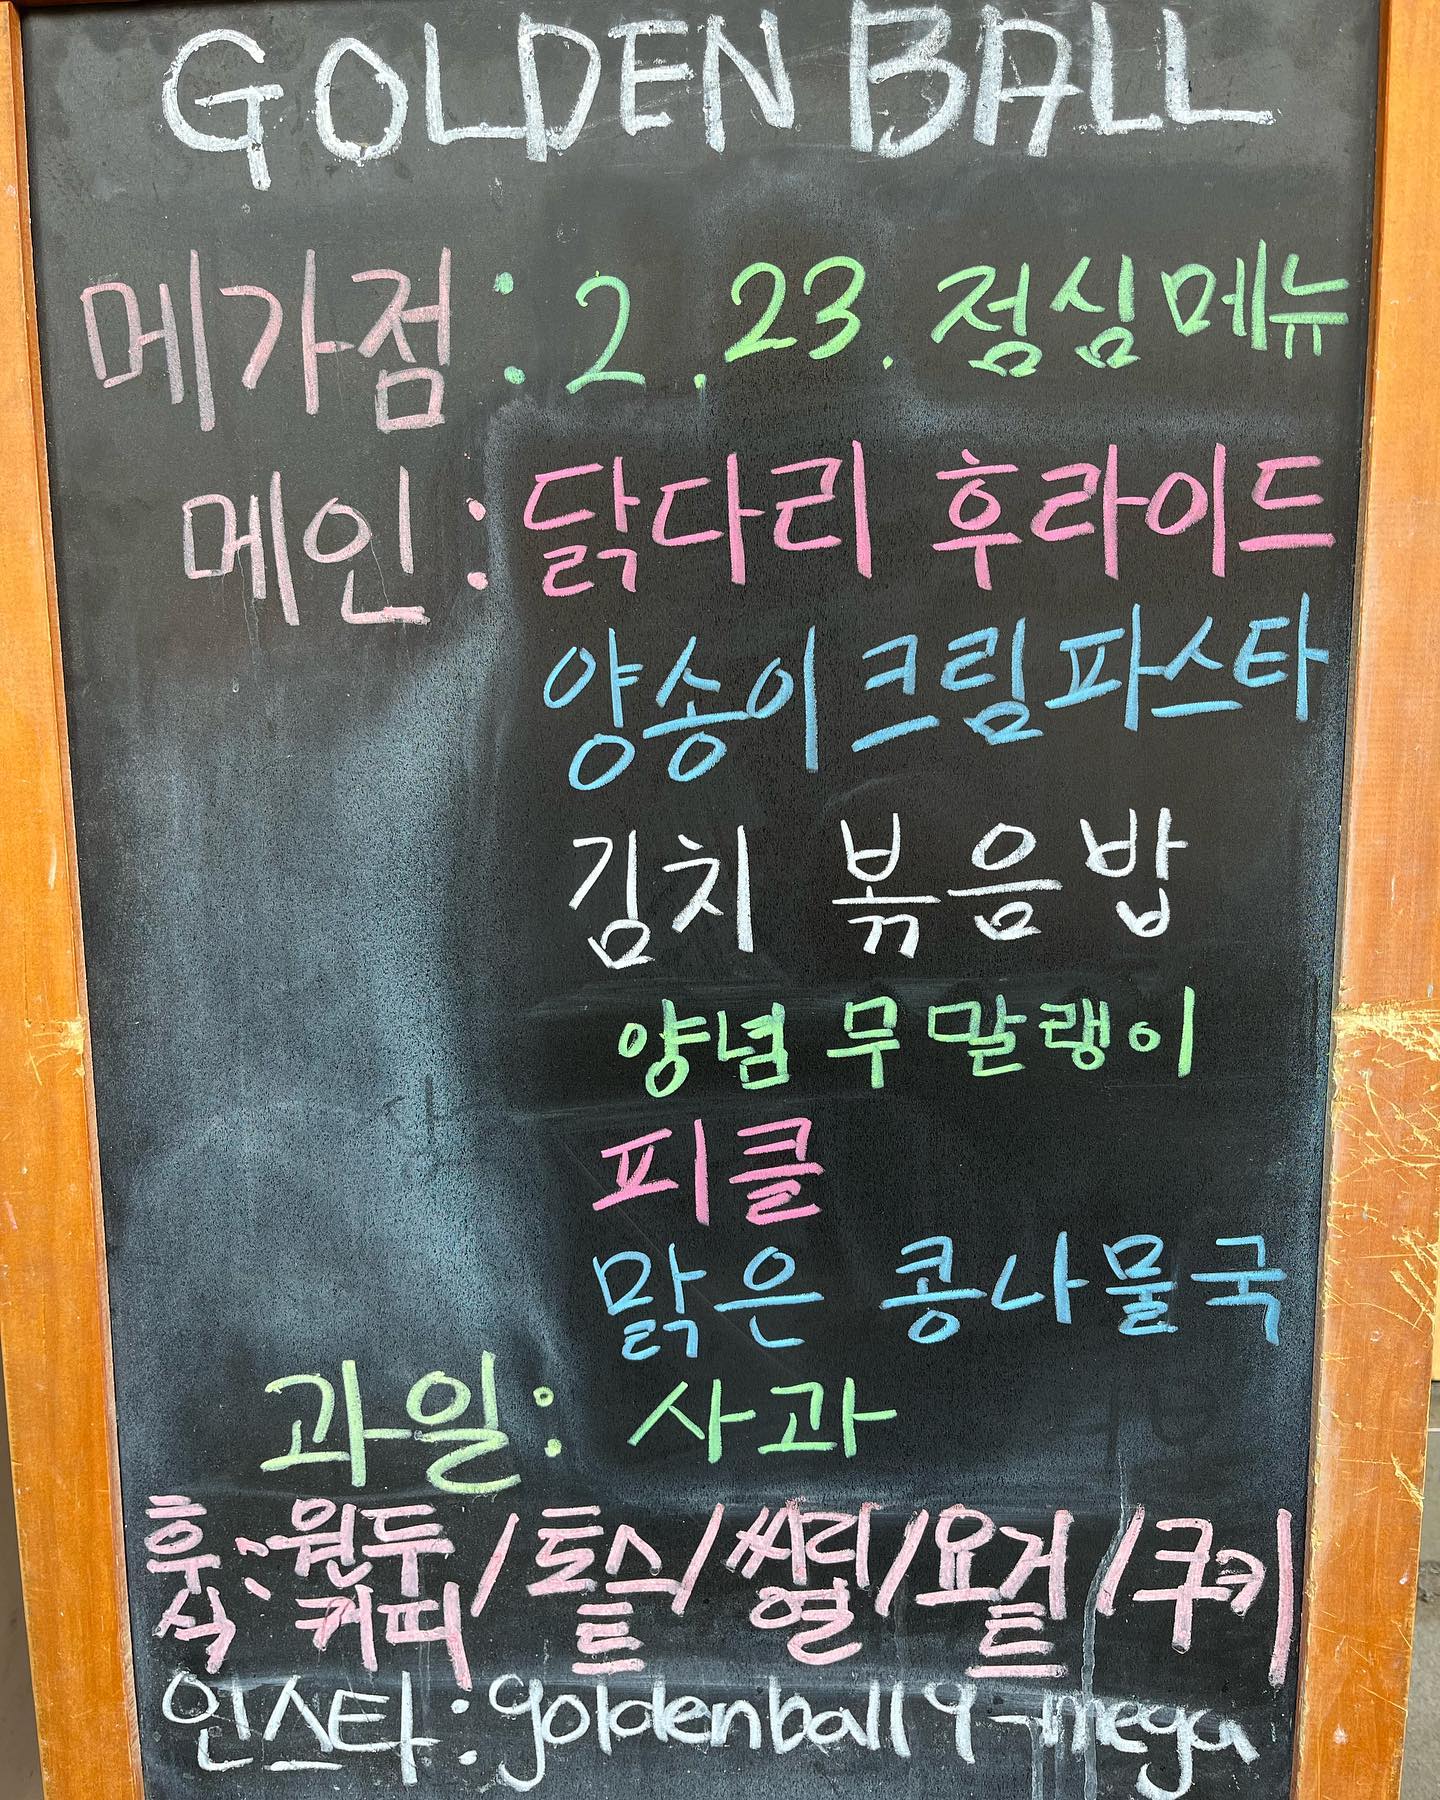 GOLDEN BALL
메가점 : 2. 23. 점심메뉴
메인 : 닭다리 후라이드
양송이크림파스타
김치 볶음밥
양념 무말랭이
피클
맑은 콩나물국
과일 : 사과
후식 : 원두커피 / 토스트 / 씨리얼 / 요거트 / 쿠키
인스타 : goldenball9-mega